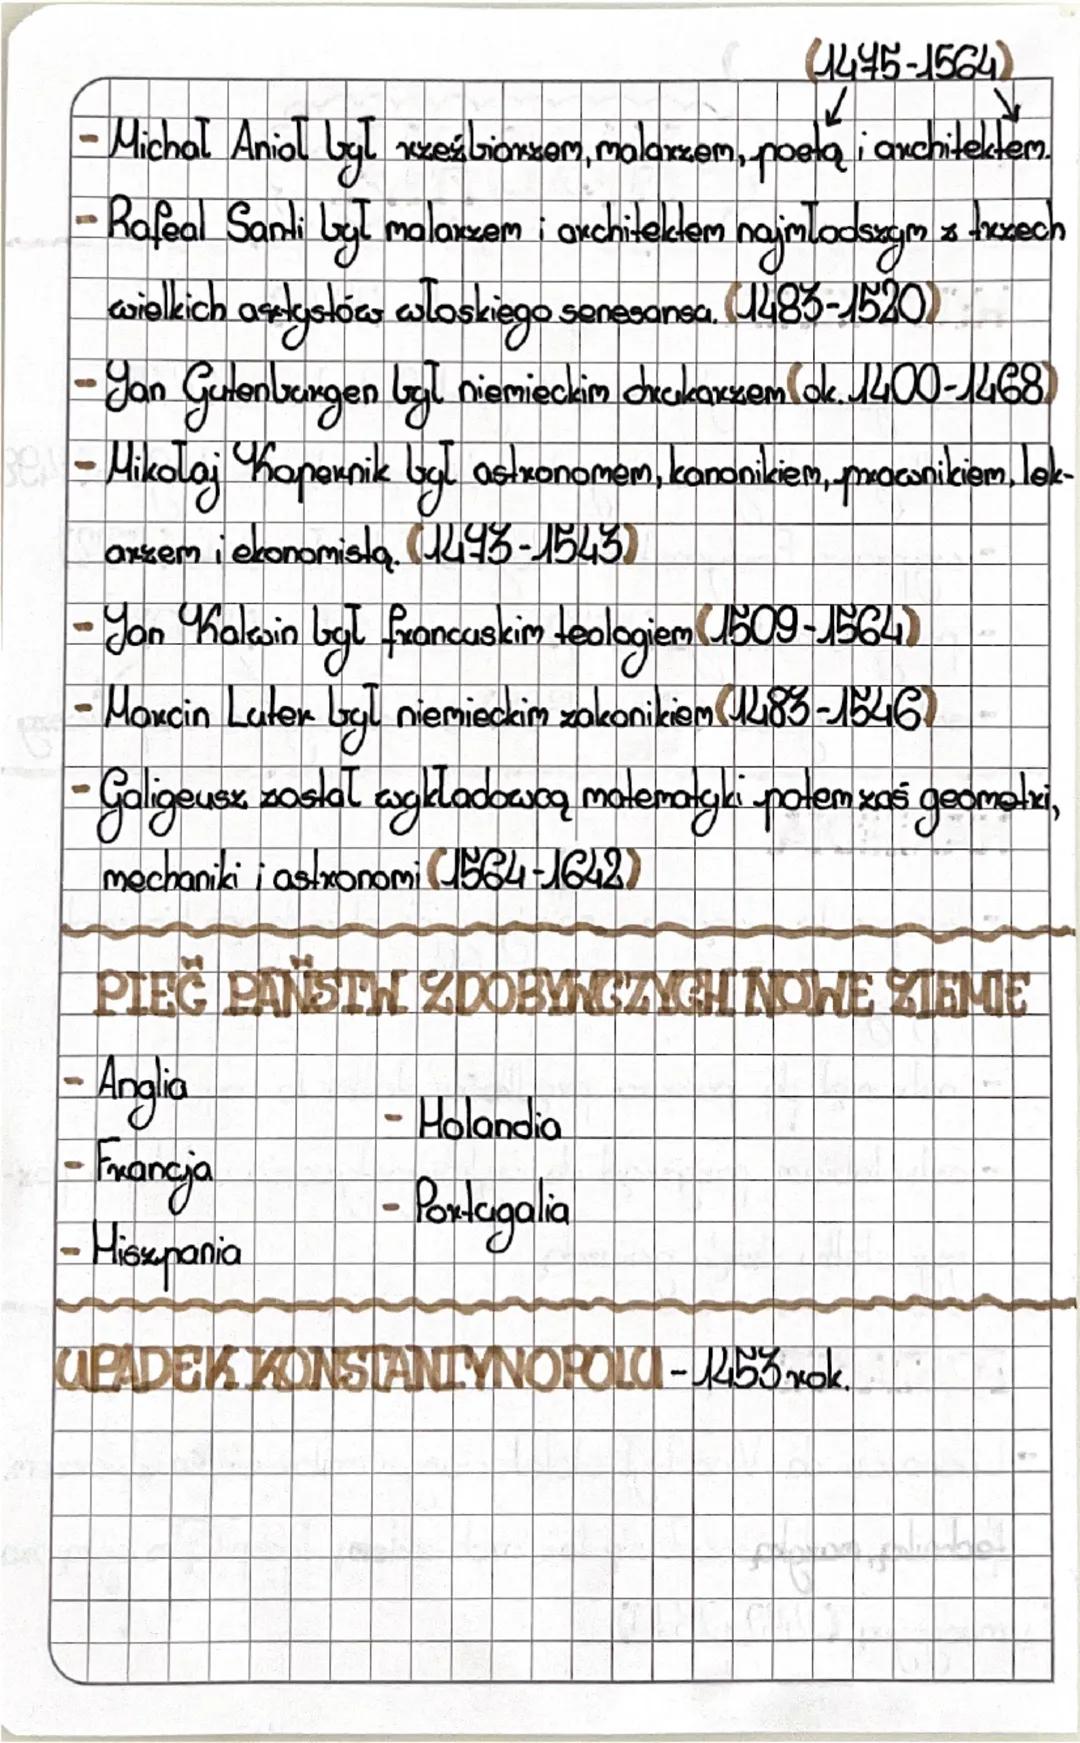 (1475-1564)
- Michał Anioł był rzeźbiarzem, malarzem, poetą i architektem.
- Rafeal Santi był malarzem i architektem najmłodszym z trzech
wielkich artystów włoskiego senesansa. (1483-1520)
- Jan Gutenburgen był niemieckim drukarzem (ok. 1400-1468)
- Mikołaj Kopernik był astronomem, kanonikiem, prawnikiem, lek-
arzem i ekonomistą. (1473-1543)
- Jan Kalwin był francuskim teologiem (1509-1564)
- Marcin Luter był niemieckim zakonikiem (1483-1546)
- Galigeusz został wykładowcą matematyki potem zaś geometri,
mechaniki i astronomi (1564-1642)
PIEĆ PAŃSTW ZDOBYWCZYCH NOWE ZIEMIE
- Anglia
- Holandia
- Francja
- Portugalia
- Hiszpania
UPADEK KONSTANTYNOPOLU - 1453 rok.